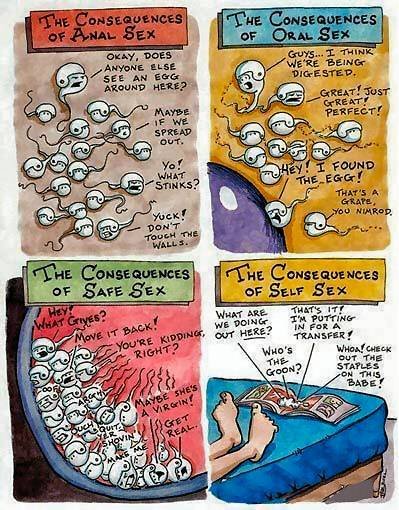 THE CONSEQUENCES
OF ANAL SEX
OKAY, DOES
ANYONE ELSE
SEE AN EGG
AROUND HERE?
MAYBE
IF WE
SPREAD
OUT.
YO!
WHAT
STINKS?
YUCK!
DON'T
TOUCH THE
WALLS.
THE CONSEQUENCES
OF ORAL SEX
GUYS... I THINK
WE'RE BEING
DIGESTED.
GREAT! JUST
GREAT!
PERFECT!
HEY! I FOUND
THE EGG!
THAT'S A
GRAPE,
YOU NIMROD.
THE CONSEQUENCES
OF SAFE SEX
HEY!
WHAT GIVES?
MOVE IT BACK!
YOU'RE KIDDING,
RIGHT?
MAYBE SHE'S
A VIRGIN!
GET
REAL.
OOF!
ARGH!
OUCH!
QUIT
YER
SHOVIN'
MAKE ME
THE CONSEQUENCES
OF SELF SEX
WHAT ARE
WE DOING
OUT HERE?
THAT'S IT!
I'M PUTTING
IN FOR A
TRANSFER!
WHO'S
THE
GOON?
WHOA! CHECK
OUT THE
STAPLES
ON THIS
BABE!